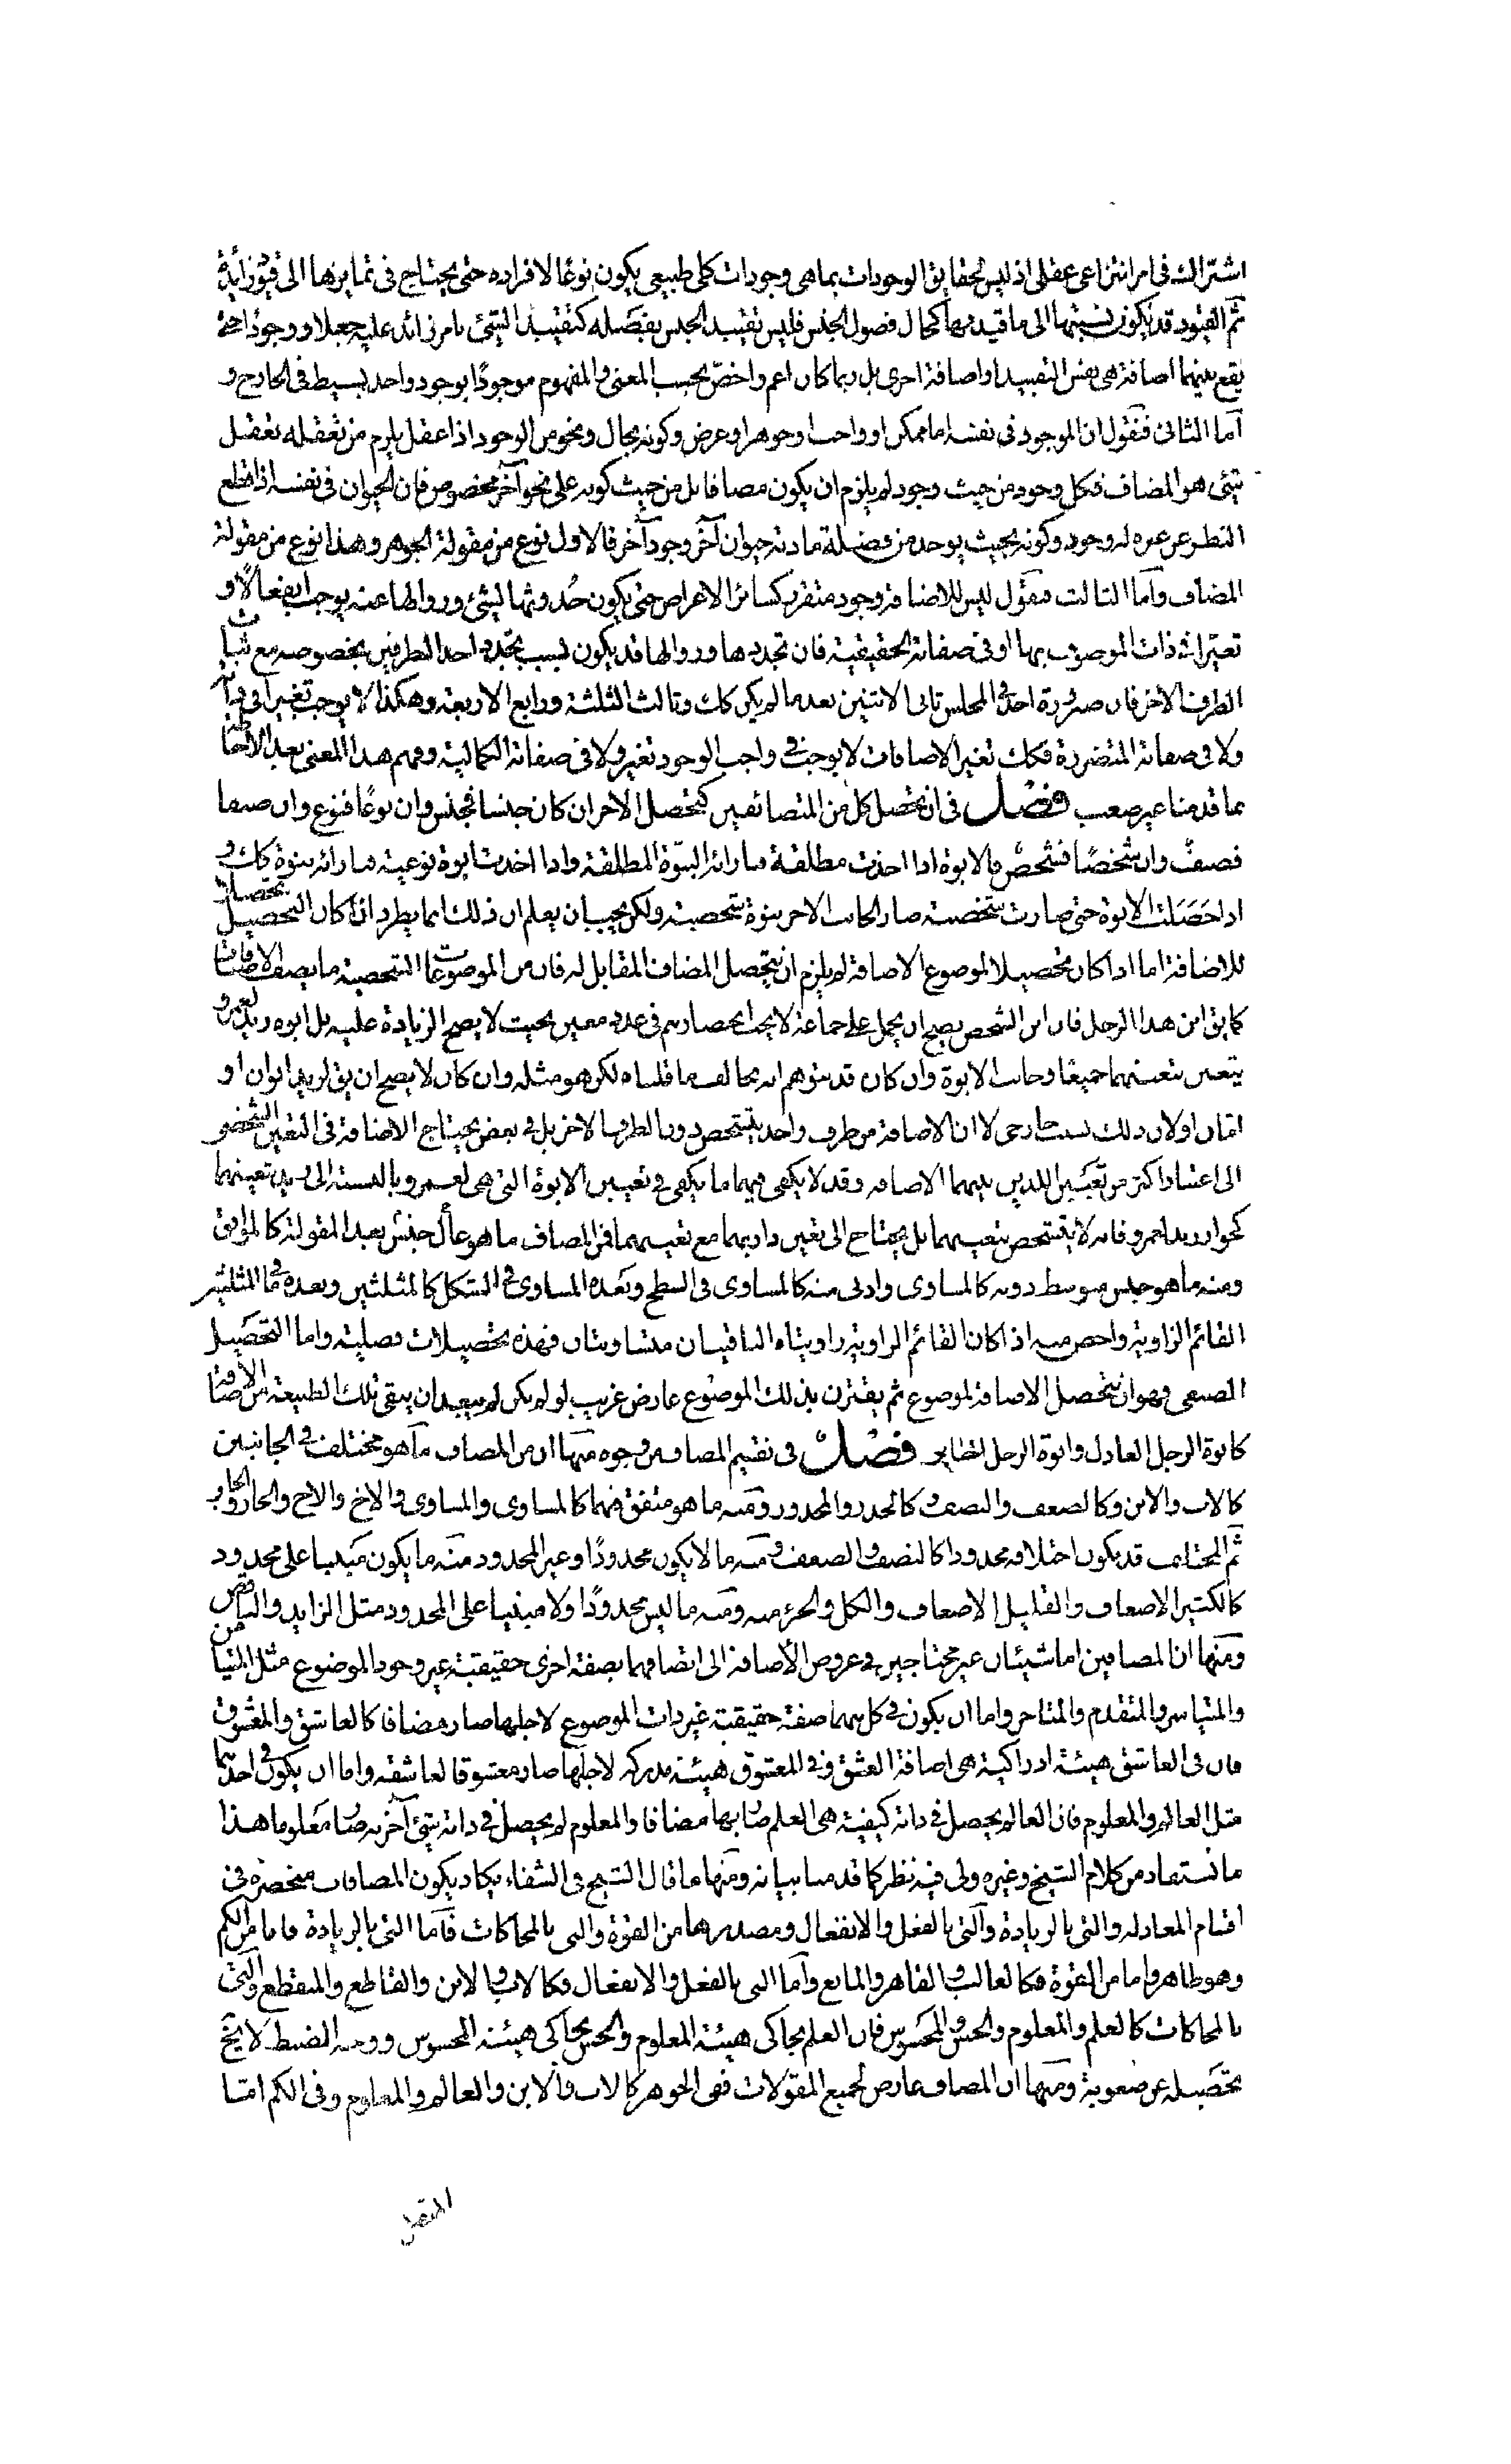 اشتراك في امر انتزاعي عقلي اذ ليس لحقايق الوجودات بما هي وجودات كلي طبيعي يكون نوعًا لافراده حتى يحتاج في تمايزها الى قيود زايدة
ثم القيود قد يكون نسبتها الى ما قيد بها كحال فصول الجنس فليس تقييد الجنس بفصله كتقييد الشيء بامر زائد عليه جعلا ووجودًا حتى
يقع بينهما اضافة هي نفس التقييد او اضافة اخرى بل ربما كان اعم واخص بحسب المعنى والمفهوم موجودًا بوجود واحد بسيط في الخارج و
اما الثاني فنقول ان الموجود في نفسه اما ممكن او واجب او جوهر او عرض وكونه بحال ونحو من الوجود اذا عقل يلزم من تعقله تعقل
شيء هو المضاف فكل وجود من حيث وجوده لم يلزم ان يكون مضافا بل من حيث كونه على نحو آخر مخصوص فان الحيوان في نفسه اذا قطع
النظر عن غيره له وجود وكونه بحيث يوجد من فضلة مادته حيوان آخر وجود آخر فالاول نوع من مقولة الجوهر وهذا نوع من مقولة
المضاف واما الثالث فنقول ليس للاضافة وجود متقرر كسائر الاعراض حتى يكون حدوثها لشيء وزوالها عنه يوجب انفعالًا و
تغيرا في ذات الموصوف بها او في صفاته الحقيقية فان تجددها وزوالها قد يكون بسبب تجدد احد الطرفين بخصوصه مع ثبات
الطرف الاخر فان صيرورة احد في المجلس ثاني الاثنين بعد ما لم يكن كك وثالث الثلثة ورابع الاربعة وهكذا لا يوجب تغيرا في ذاته
ولا في صفاته المتقررة فكك تغير الاضافات لا يوجب في واجب الوجود تغير ولا في صفاته الكمالية وفهم هذا المعنى بعد الاحاطة
بما قدمنا غير صعب فصل في ان تحصل كل من المتضائفين كتحصل الاخر ان كان جنسا فجنس وان نوعًا فنوع وان صنفا
فصنف وان شخصًا فشخص فالابوة اذا اخذت مطلقة فبازائه البنوة المطلقة واذا اخذت ابوة نوعية فبازائه بنوة كك و
اذا حصلت الابوة حتى صارت شخصية صار الجانب الاخر بنوة شخصية ولكن يجب ان يعلم ان ذلك انما يطرد اذا كان التحصيل تحصيلا
للاضافة اما اذا كان تحصيلا لموضوع الاضافة لم يلزم ان يتحصل المضاف المقابل له فان من الموضوعات الشخصية ما يصف الاضافات
كما يق ابن هذا الرجل فان ابن الشخص يصح ان يحمل على جماعة لا يجب انحصارهم في عدد معين بحيث لا يصح الزيادة عليه بل ابوة زيد لعمرو
يتعين بتعينهما جميعًا وجانب الابوة وان كان قد يتوهم انه يخالف ما قلناه لكن هو مثله وان كان لا يصح ان يق لزيد ابوان او
امان اولان ذلك بسبب خارجي لا ان الاضافة من طرف واحد يتشخص دون الطرف الاخر بل في بعض يحتاج الاضافة في التعين الشخصي
الى اعتبار اكثر من تعيين اللذين بينهما الاضافة وقد لا يكفي فيهما ما يكفي في تعيين الابوة التي هي لعمرو بالنسبة الى زيد تعينهما
كجوار زيد لعمرو فانه لا يتشخص بتعينهما بل يحتاج الى تعين داريهما مع تعينهما فمن المضاف ما هو عال جنس بعد المقولة كالموافق
ومنه ما هو جنس متوسط دونه كالمساوي وادنى منه كالمساوي في السطح وبعده المساوي في الشكل كالمثلثين وبعده في المثلثين
القائم الزاوية واخص منه اذا كان القائم الزاوية زاويتاه الباقيتان متساويتان فهذه تحصيلات فصلية واما التحصيل
الصنفي فهو ان يتحصل الاضافة لموضوع ثم يقترن بذلك الموضوع عارض غريب لو لم يكن لم يبعد ان يبقى تلك الطبيعة من الاضافة
كابوة الرجل العادل وابوة الرجل الجاير فصل في تقسيم المضاف من وجوه منها ان من المضاف ما هو مختلف في الجانبين
كالاب والابن وكالضعف والنصف وكالجذر والمجذور ومنه ما هو متفق فيهما كالمساوي والمساوي والاخ والاخ والجار والجار
ثم المختلف قد يكون اختلافه محدودا كالنصف والضعف ومنه ما لا يكون محدودًا وغير المحدود منه ما يكون مبنيا على محدود
كالكثير الاضعاف والقليل الاضعاف والكل والجزء منه ومنه ما ليس محدودًا ولا مبنيا على المحدود مثل الزايد والناقص
ومنها ان المضافين اما شيئان غير محتاجين في عروض الاضافة الى اتصافهما بصفة اخرى حقيقية غير وجود الموضوع مثل المتيامن
والمتياسر والمتقدم والمتاخر واما ان يكون في كل منهما صفة حقيقية غير ذات الموضوع لاجلها صار مضافا كالعاشق والمعشوق
فان في العاشق هيئة ادراكية هي اضافة العشق وفي المعشوق هيئة مدركة لاجلها صار معشوقا لعاشقه واما ان يكون في احدهما
مثل العالم والمعلوم فان العالم يحصل في ذاته كيفية هي العلم صار بها مضافا والمعلوم لم يحصل في ذاته شيء آخر به صار معلوما هذا
ما نستفاد من كلام الشيخ وغيره ولي فيه نظر كما قدمنا بيانه ومنها ما قال الشيخ في الشفاء يكاد يكون المضافات منحصرة في
اقسام المعادلة والتي بالزيادة والتي بالفعل والانفعال ومصدرها من القوة والتي بالمحاكات فاما التي بالزيادة فاما من الكم
وهو ظاهر واما من القوة فكالغالب والقاهر والمانع واما التي بالفعل والانفعال فكالاب والابن والقاطع والمنقطع والتي
بالمحاكات كالعلم والمعلوم والحس والمحسوس فان العلم يحاكي هيئة المعلوم والحس يحاكي هيئة المحسوس ووجه الضبط لا يخ
تحصيله عن صعوبة ومنها ان المضاف عارض لجميع المقولات ففي الجوهر كالاب والابن والعالم والمعلوم وفي الكم اما